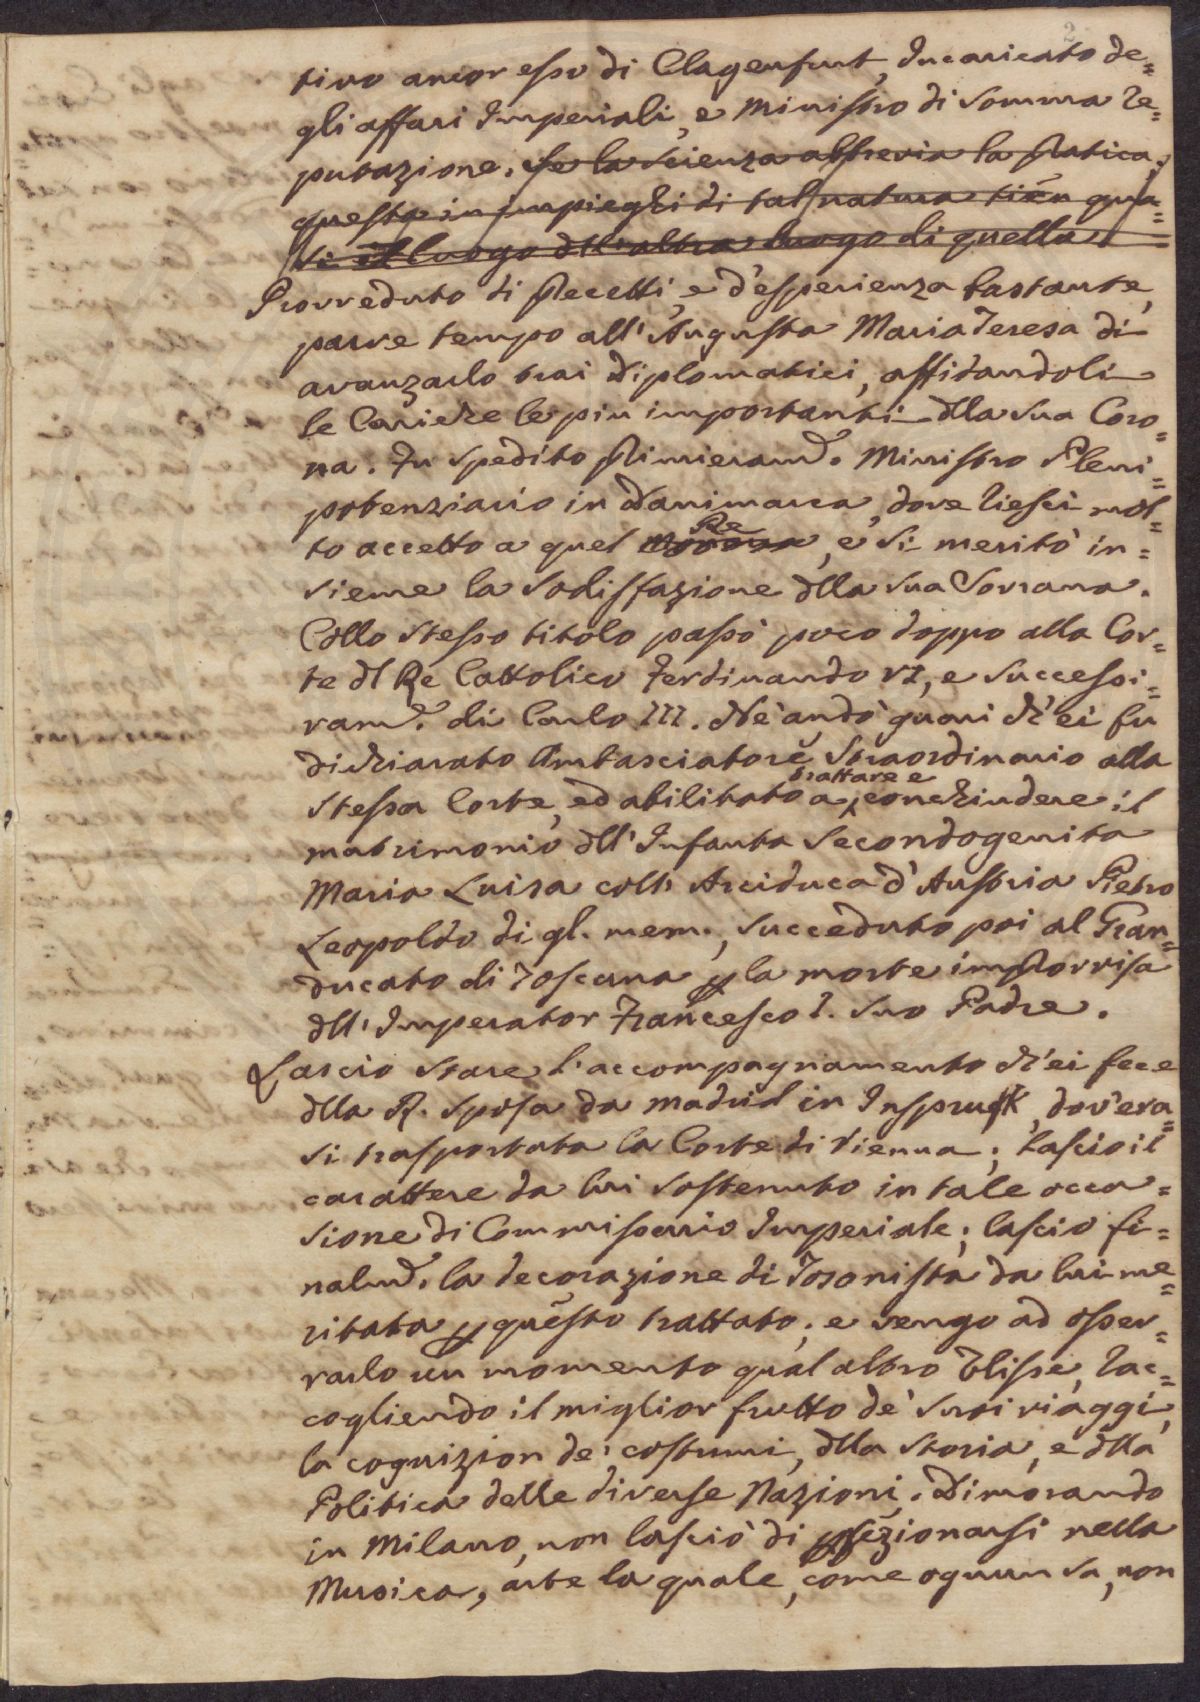 2
tivo ancor esso di Clagenfurt, Incaricato de=
gli affari Imperiali, e Ministro di somma re=
putazione. se la scienza abbrevia la pratica,
questa in impieghi di tal natura tien qua=
si il luogo dll'altra luogo di quella
Provveduto di precetti, e d'esperienza bastante,
parve tempo all'Augusta Maria Teresa di
avanzarlo trai Diplomatici, affidandoli
le Cariche le piu importanti dlla sua Coro=
na. Fu spedito primieramᵉ. Ministro Pleni=
potenziario in Danimarca, dove riescì mol=
Re
to accetto a quel , e si meritò in=
sieme la sodisfazione dlla sua Sovrana.
Collo stesso titolo passò poco doppo alla Cor=
te dl Re Cattolico Ferdinando VI, e successi=
vamᵉ. di Carlo III. Nè andò guari ch'ei fu
dichiarato Ambasciatore Straordinario alla
trattare e
stessa Corte, ed abilitato a conchiudere il
matrimonio dll'Infanta Secondogenita
Maria Luisa coll'Arciduca d'Austria Pietro
Leopoldo di gl. mem., succeduto poi al Gran=
ducato di Toscana p la morte improvvisa
dll'Imperator Francesco I. suo Padre.
Lascio stare l'accompagnamento ch'ei fece
dlla R. Sposa da Madrid in Inspruk, dov'era=
si trasportata la Corte di Vienna; lascio il
carattere da lui sostenuto in tale occa=
sione di Commissario Imperiale; lascio fi=
nalmᵉ. la decorazione di Tosonista da lui me=
ritata p questo trattato; e vengo ad osser=
varlo un momento qual altro Ulisse, rac=
cogliendo il miglior frutto de' suoi viaggi,
la cognizion de' costumi, dlla storia, e dlla
Politica delle diverse Nazioni. Dimorando
in Milano, non lasciò di pfezionarsi nella
Musica, arte la quale, come ognun sa, non